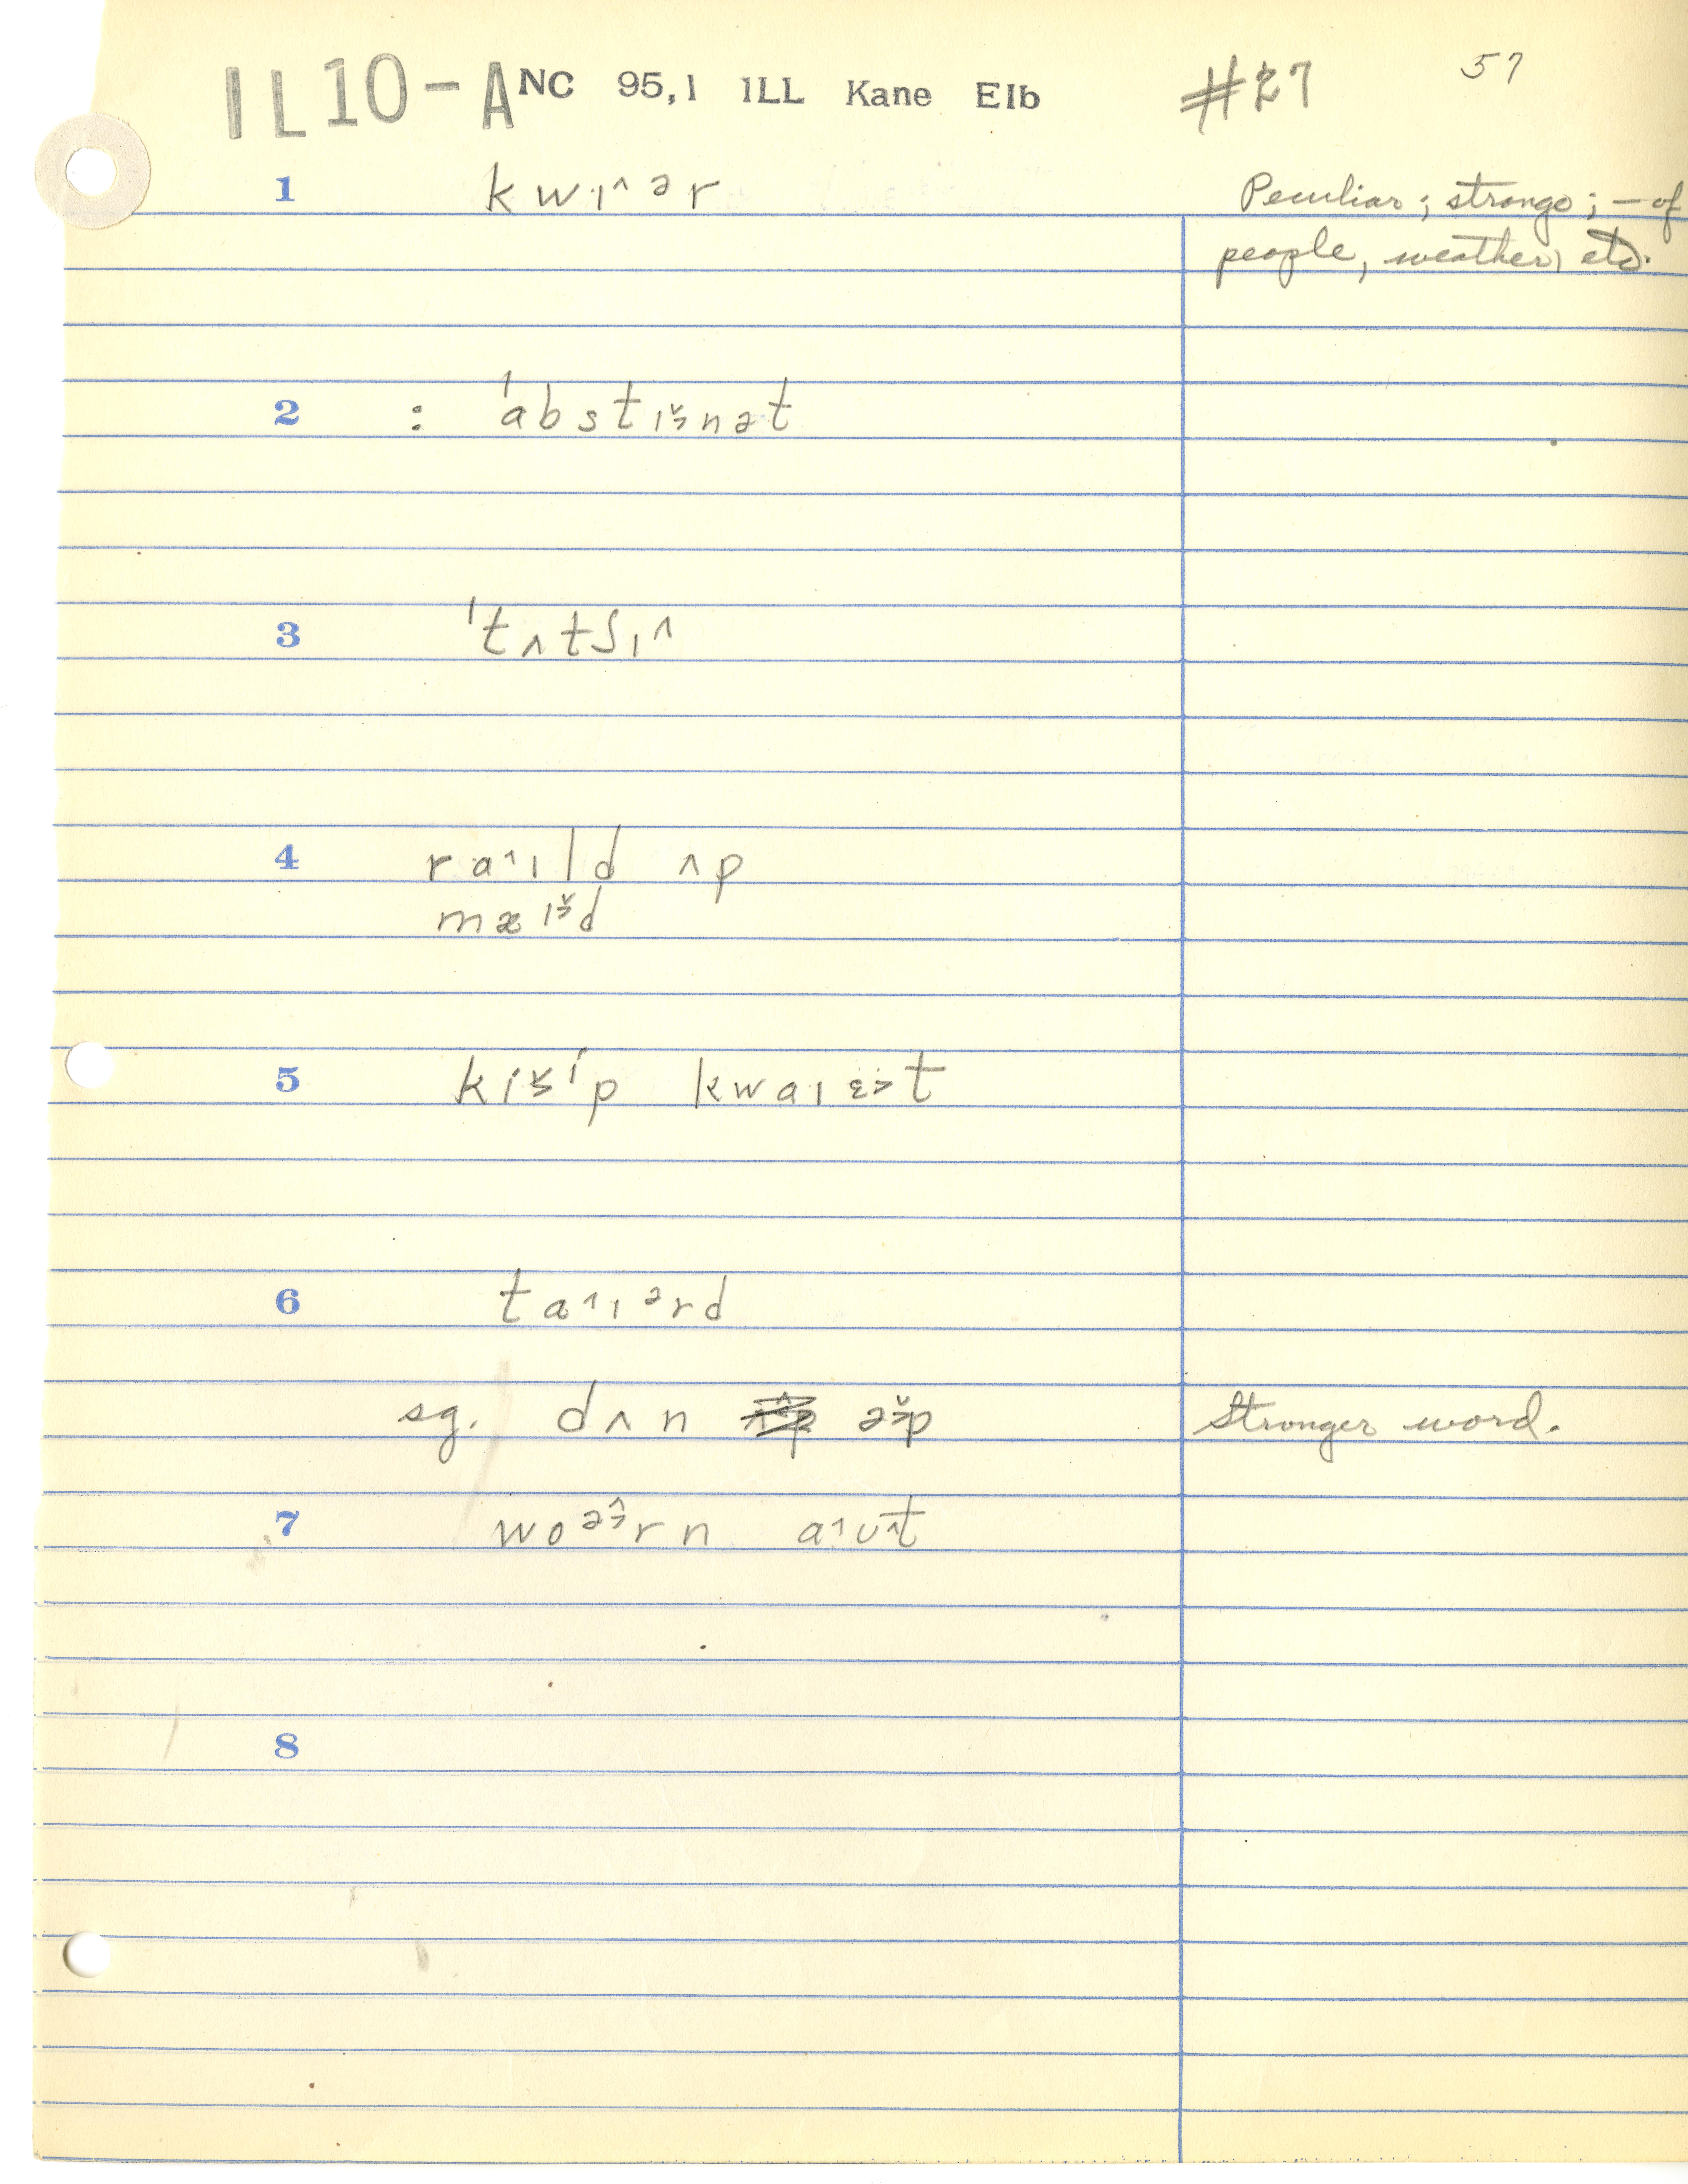 IL10-A NC 95,1 ILL Kane Elb #27 57
1 kwɪ^ər Peculiar; strange; — of
people, weather, etc.
2 : ˈabstɪ̌>nət
3 ˈtʌtʃɪ^
4 ra^ɪld ʌp
mæɪ̌>d
5 kiˇ<ⁱp kwaɪɛ̈>t
6 ta^ɪᵊrd
sg. dʌn əˇ>p Stronger word.
7 woᵊ^>rn a^ʊ^t
8